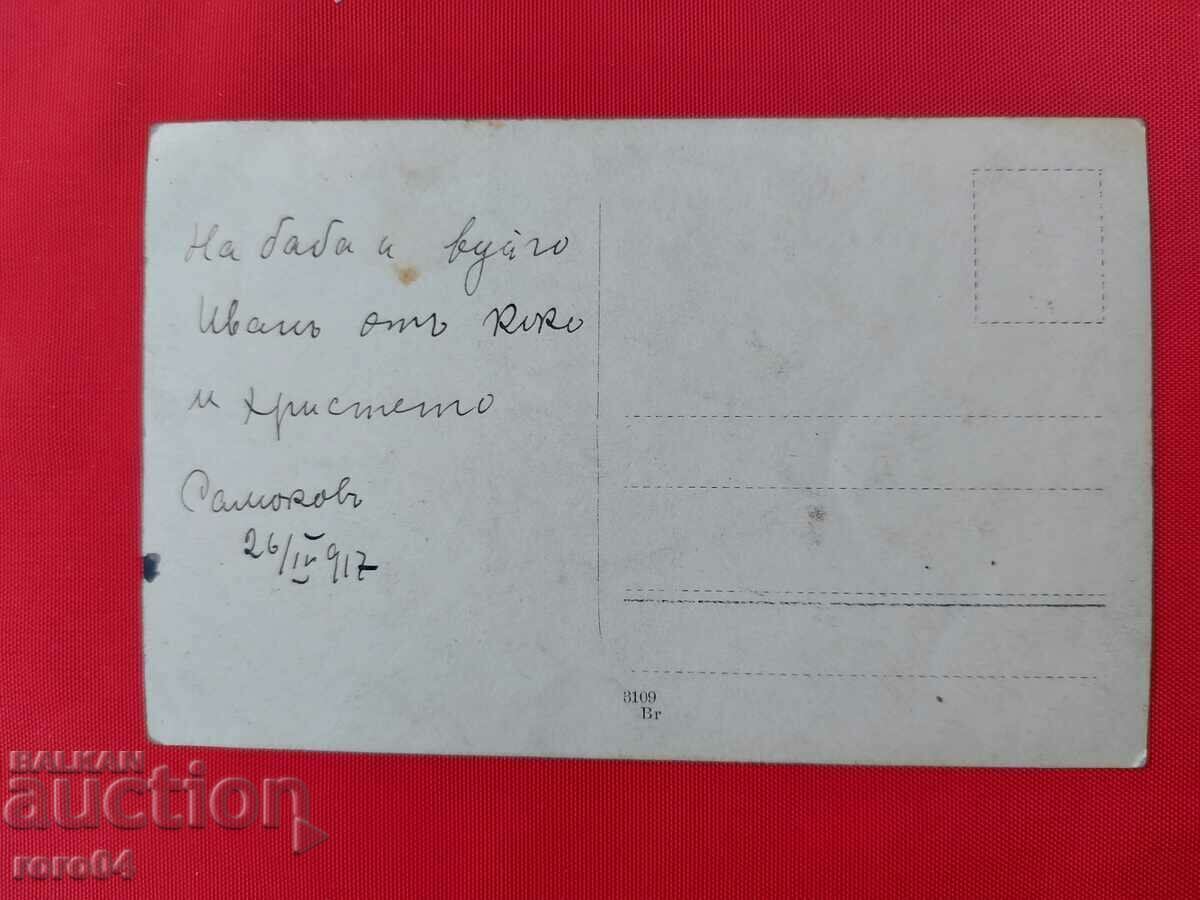 На баба и вуйчо
Иванъ отъ Коко
и Христето
Самоковъ
26/IV 917
3109
Br
BALKAN
auction
roro04